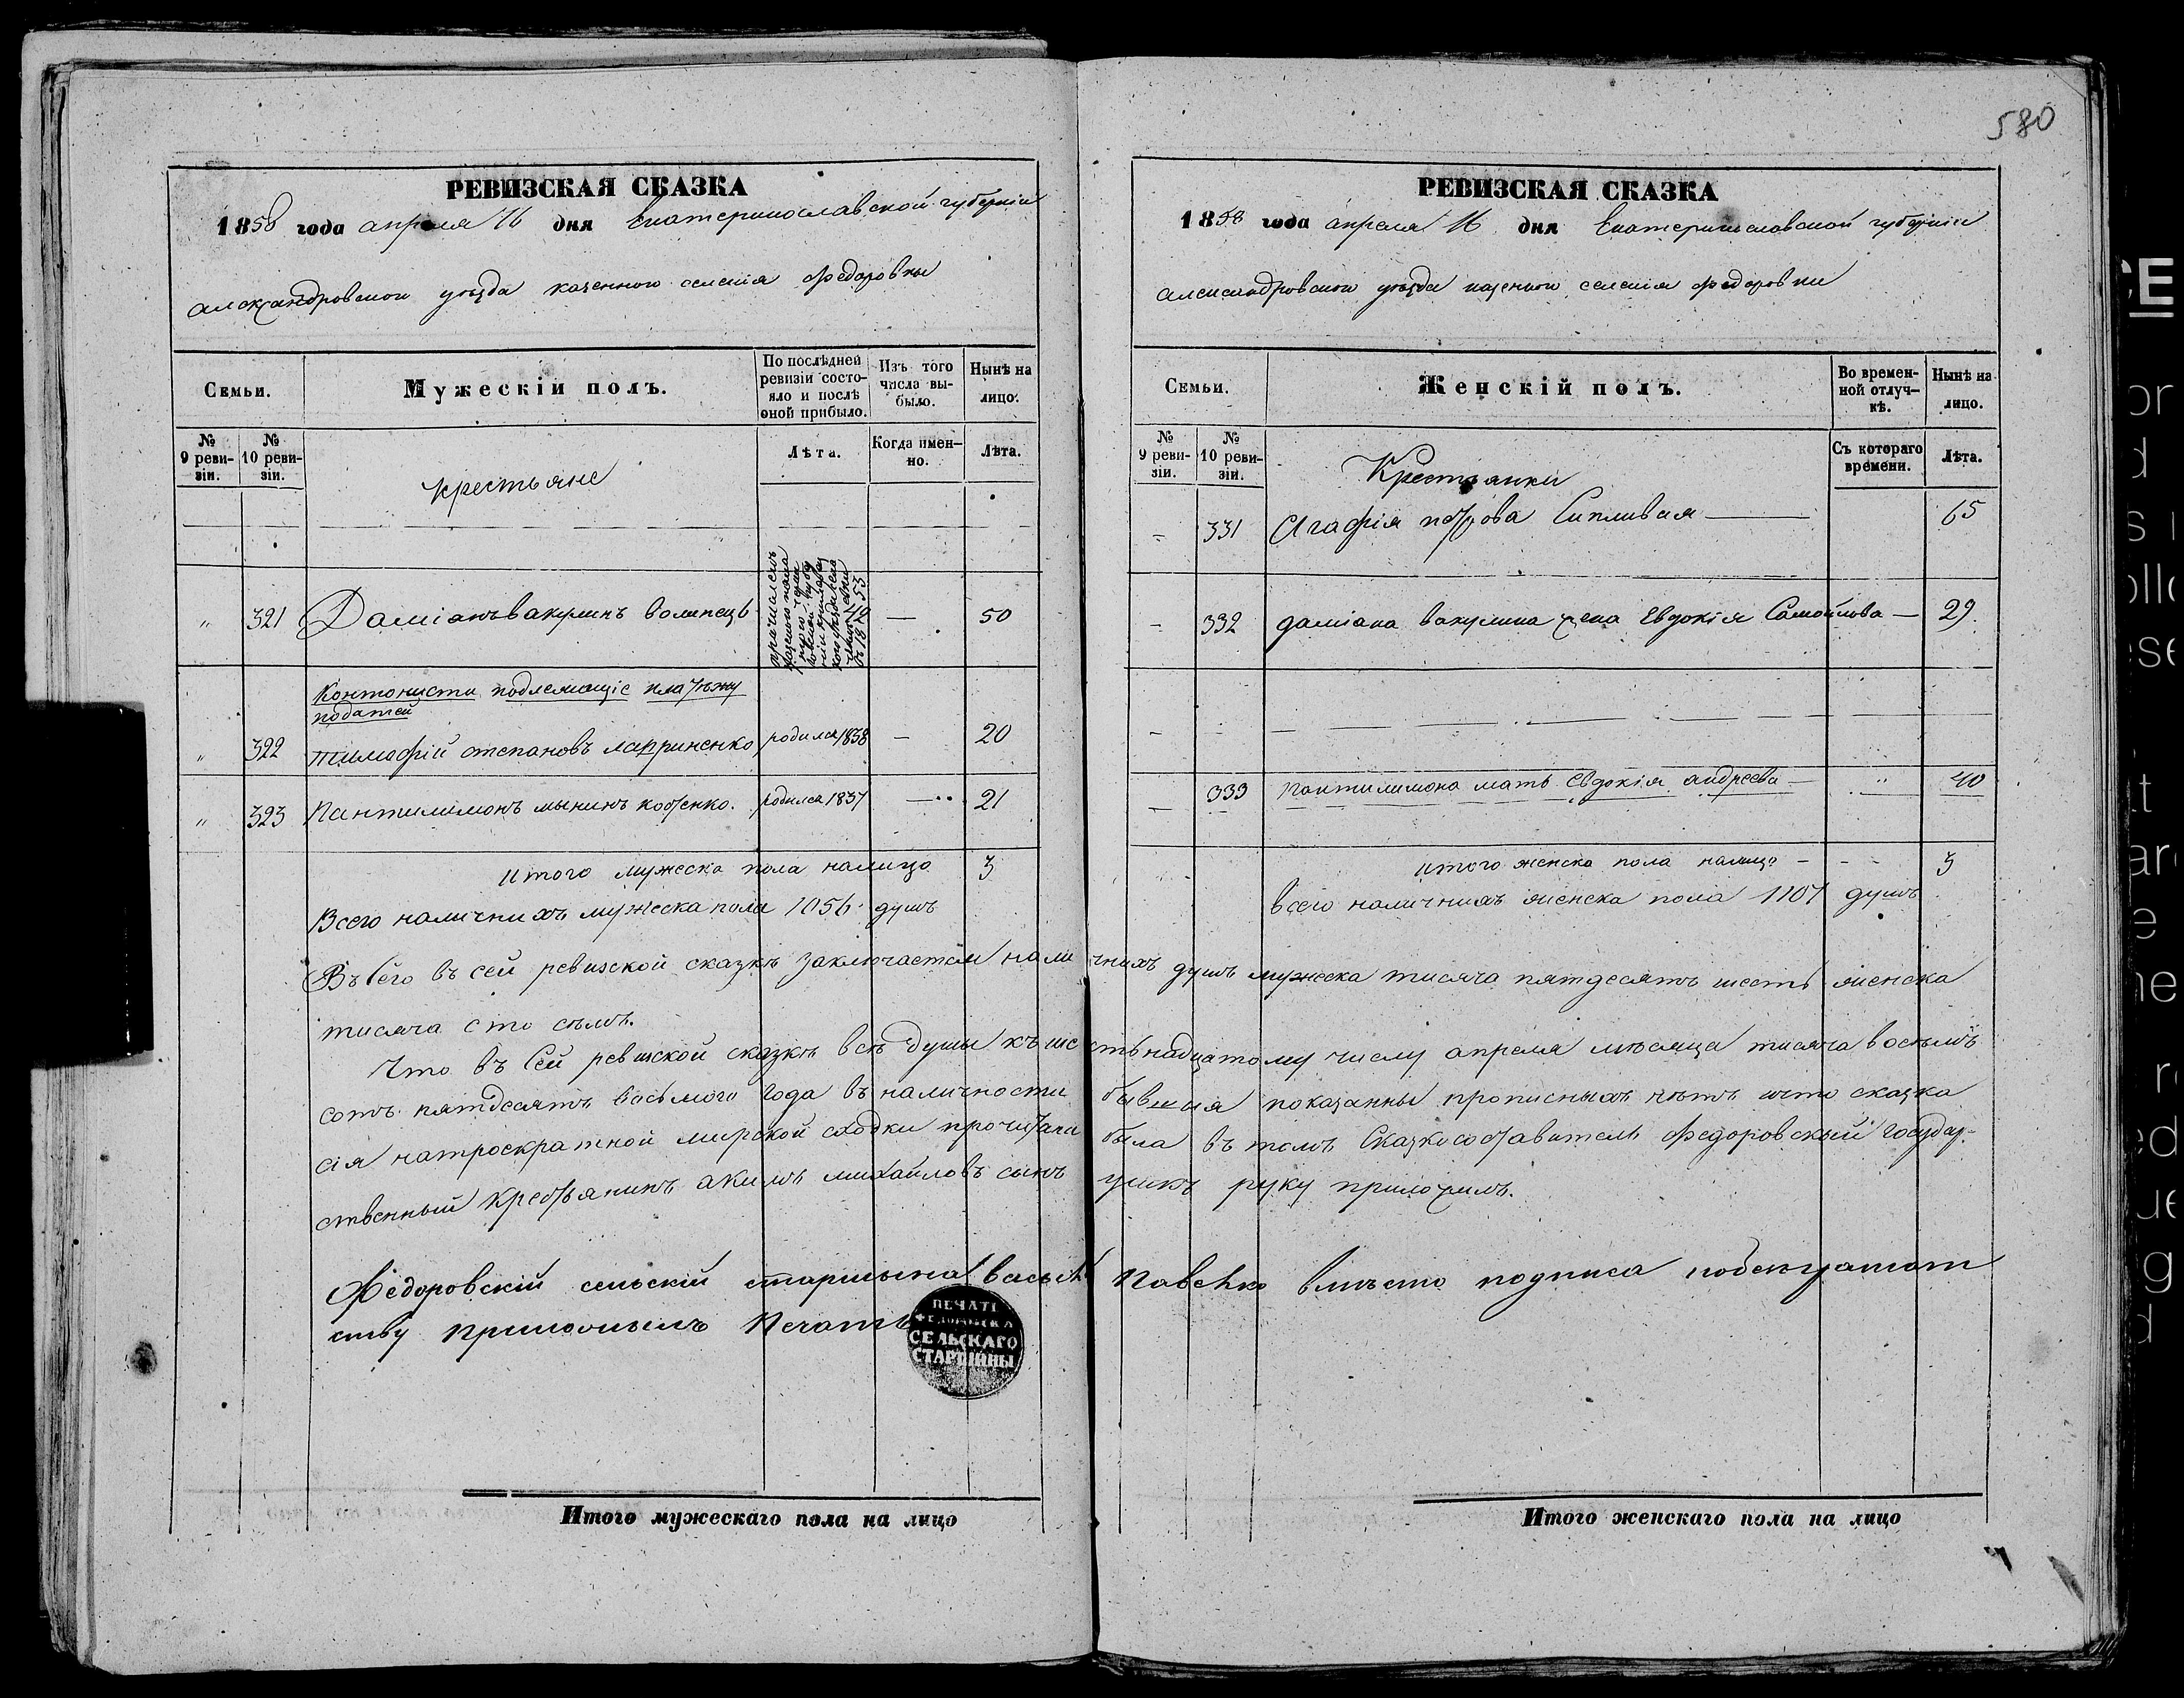 580
РЕВИЗСКАЯ СКАЗКА
1858 года апреля 16 дня Екатеринославской губернии
александровского уезда казенного селенія Федоровки
Семьи.
Мужескій полъ.
По послѣдней ревизіи состояло и послѣ оной прибыло.
Изъ того числа выбыло.
Нынѣ на лицо.
№ 9 ревизіи.
№ 10 ревизіи.
крестьяне
Лѣта.
Когда именно.
Лѣта.
„ 321 Даміанъ вакулинъ волинецъ — 50
Контонисти подлежащіе платѣжу
податей
„ 322 тимофій степановъ родился 1838 — 20
„ 323 Пантилимонъ костенко. родился 1837 — 21
итого мужеска пола налицо 3
Всего наличнихъ мужеска пола 1056 душъ
РЕВИЗСКАЯ СКАЗКА
1858 года апреля 16 дня Екатеринославской губерніи
александровского уезда казеного селенія федоровки
Семьи.
Женскій полъ.
Во временной отлучкѣ.
Нынѣ на лицо.
№ 9 ревизіи.
№ 10 ревизіи.
Крестьянки
Съ котораго времени.
Лѣта.
331 Агафія петрова Сипливая — 65
332 даміана вакулина жена Евдокія Самойлова — 29
333 Пантилимона мать Евдокія андреева — „ 40
итого женска пола налицо - - - 3
всего наличнихъ женска пола 1107 душъ
Въ сего въ сей ревизской сказкѣ заключается наличнихъ душъ мужеска тисяча пятдесятъ шесть женска
тисяча сто сѣмъ.
Что въ Сей ревизской сказкѣ всѣ души къ шестьнадцатому числу апреля мѣсяца тисяча восѣмъ
сотъ пятдесятъ восьмого года въ наличности бывшия показанны прописныхъ нѣтъ что сказка
сія натроскратной мирской сходки прочитана была въ томъ Сказкосоставитель Федоровскый государ-
ственный крестьянинъ акимъ михайловъ сынъ руку приложилъ.
Федоровскій сельскій старшына вмѣсто подписа
ству приложылъ Печать
ПЕЧАТІ
ФЕДОРОВСКА
СЕЛЬСКАГО
СТАРШИНЫ
Итого мужескаго пола на лицо
Итого женскаго пола на лицо